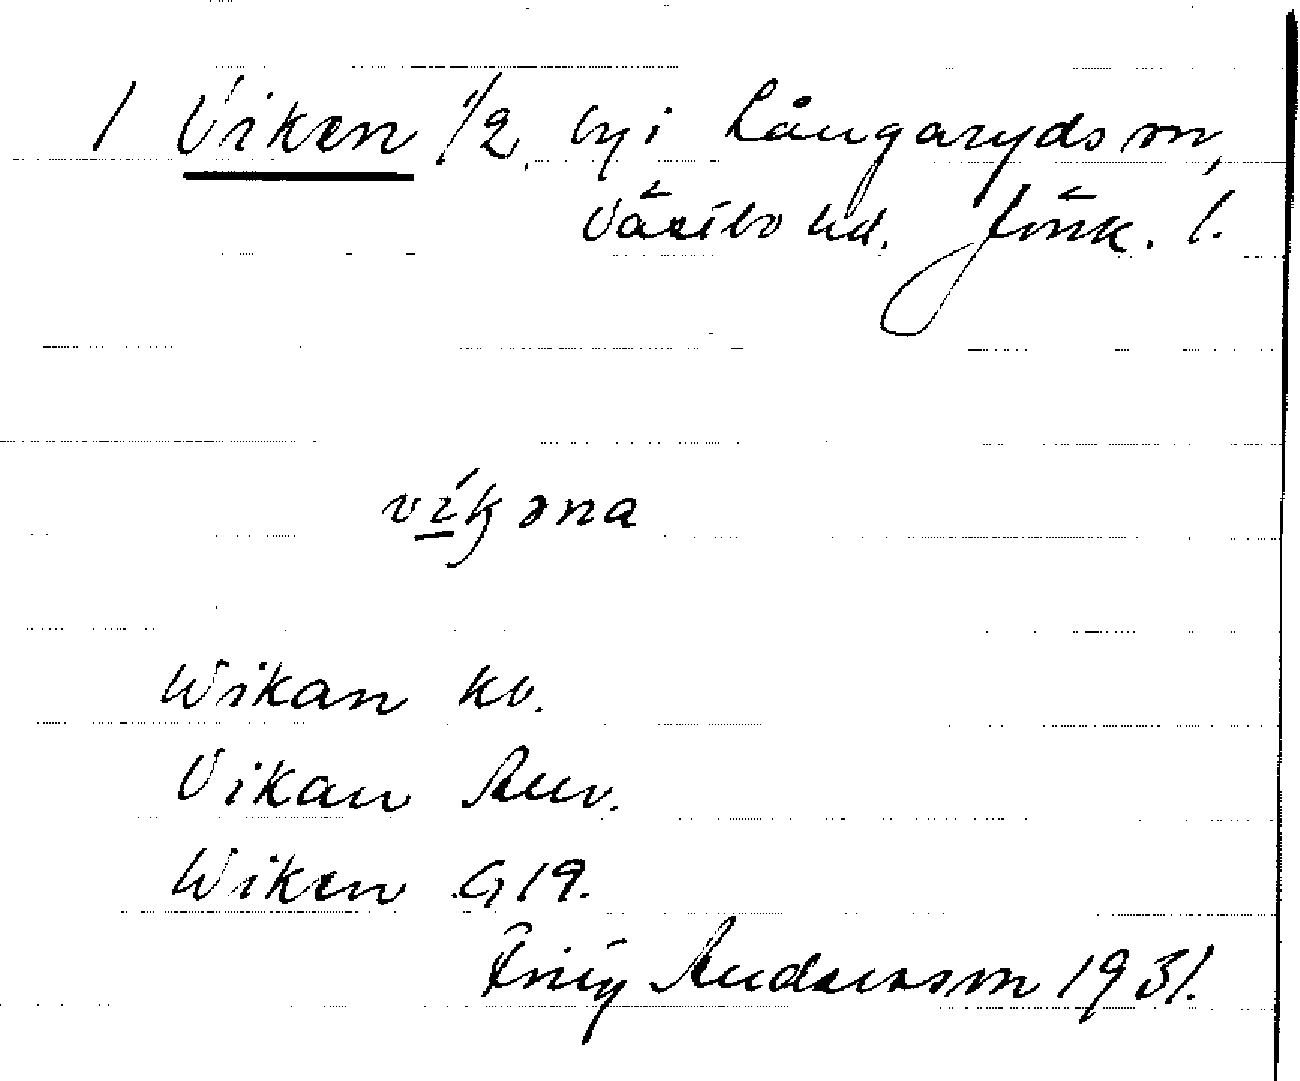 1 Viken 1/2 by i Långaryds sn,
Västbo hd. Jönk. l.
vi̱kəna
Wikan kv.
Vikan Anv.
Wiken G19.
Frity Andersson 1931.